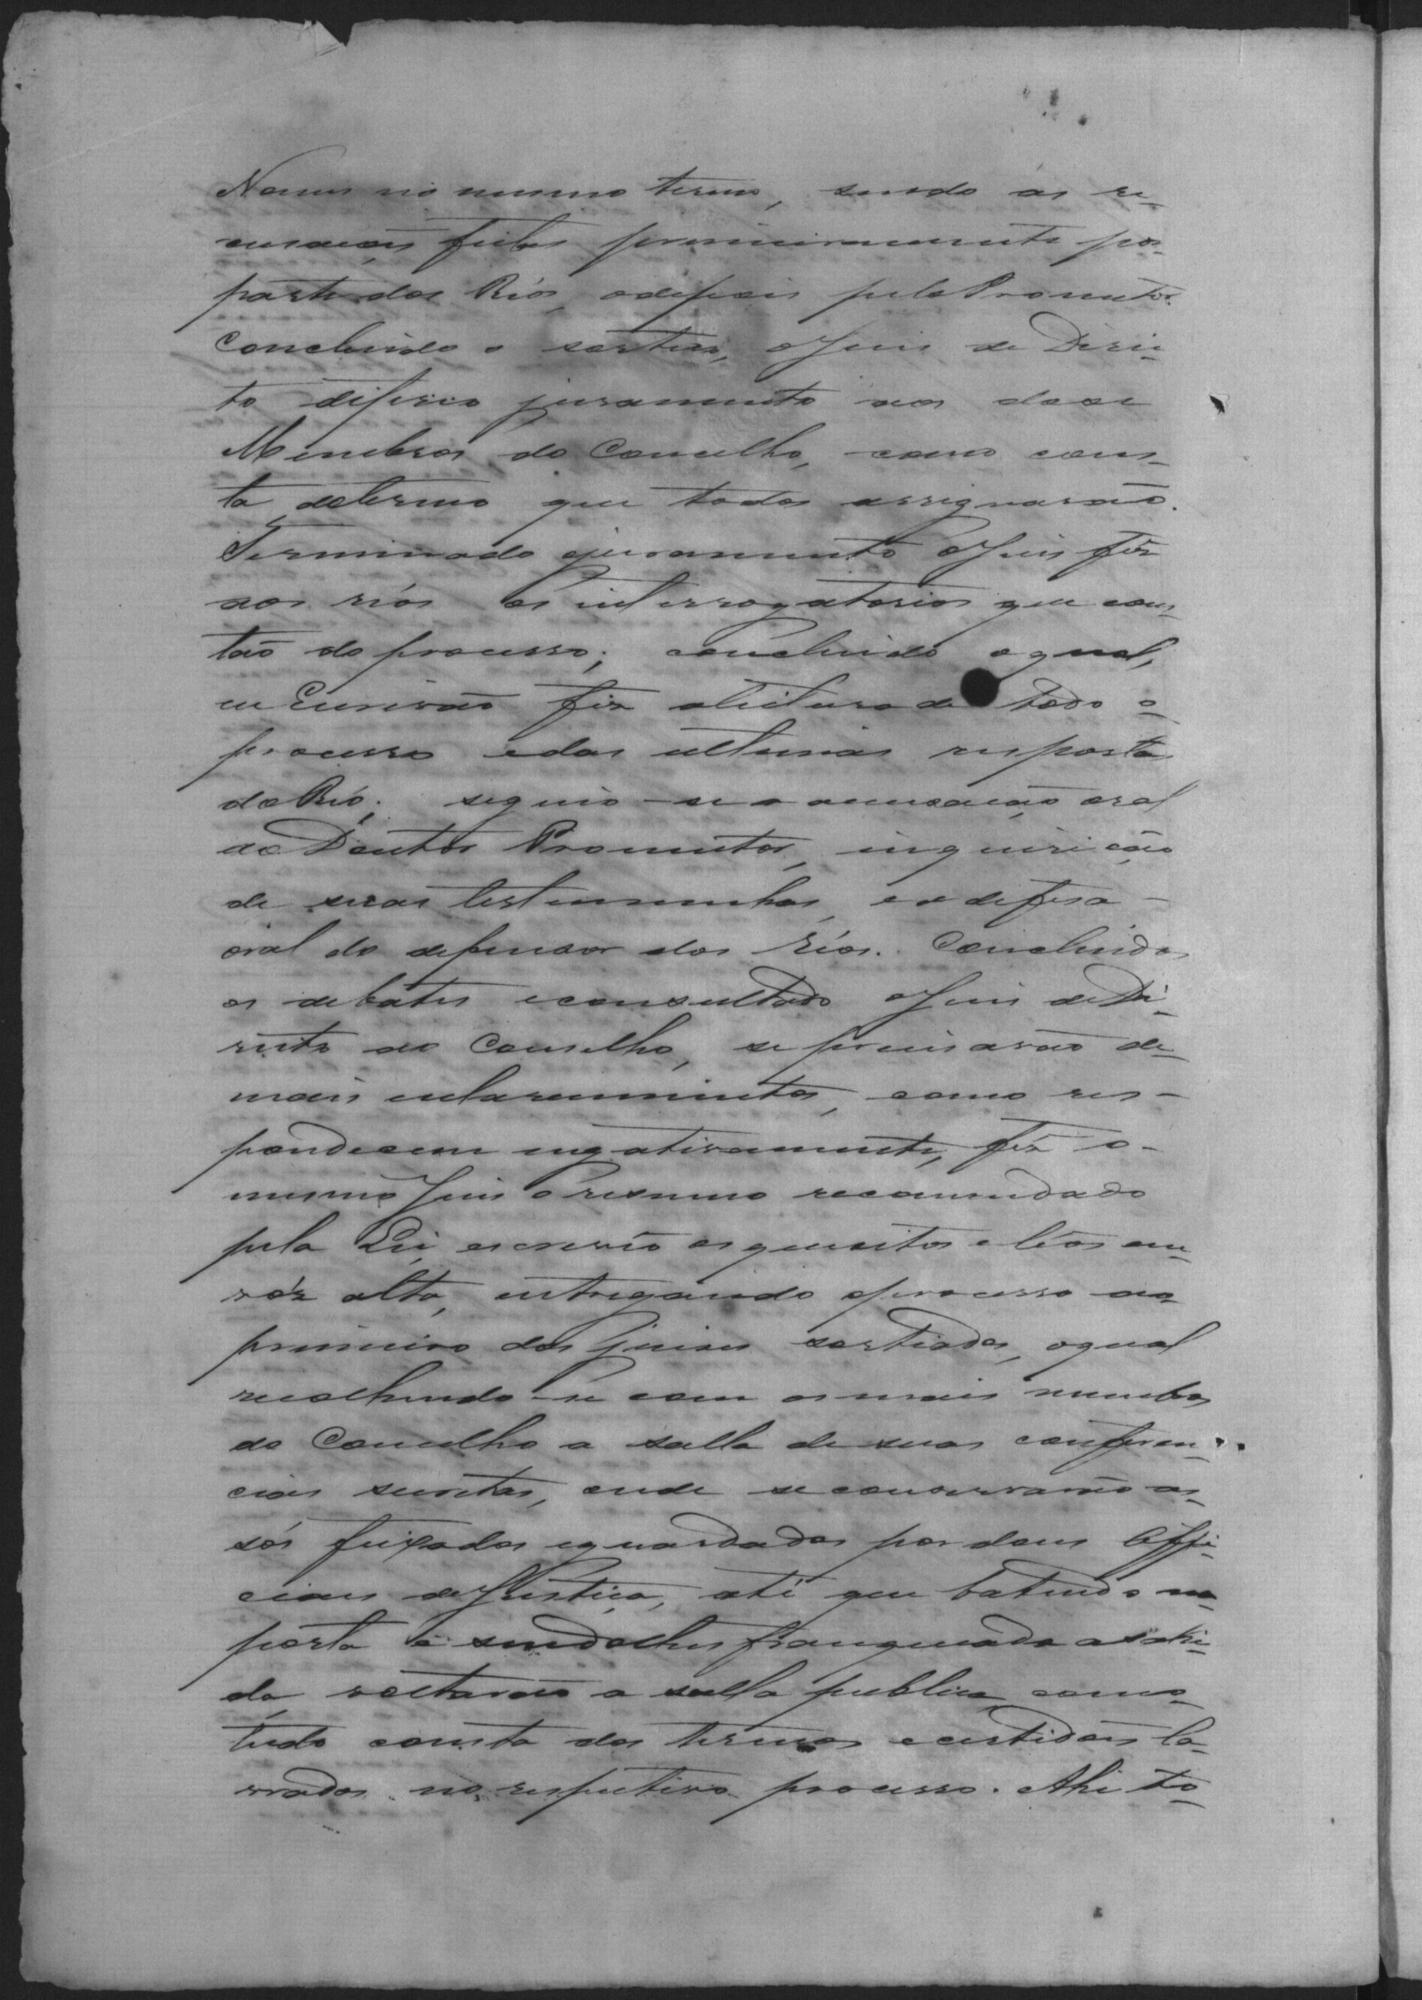 Nomes no mesmo termo, sendo as re-
cusações feitas primeiramente por
parte dos Réos, e depois pelo Promotor.
Concluido o sorteio, o Juis de Direi-
to diferio juramento aos dose
Membros do Concelho, como cons-
ta do termo que todos assignarão.
Terminado o juramento o Juis fez
aos réos os interrogatorios que cons-
tão do processo; concluido o qual,
eu Escrivão fiz a leitura de todo o
processo e das ultimas respostas
do Réo; seguio-se a accusação oral
do Doutor Promotor, inquirição
de suas testemunhas, e a defesa
oral do defensor dos réos. Concluidos
os debates e consultado o Juis de Di-
reito ao Conselho, se precisavão de
mais esclarecimentos, como res-
pondecem negativamente, fez o
mesmo Juis o resumo recomendado
pela Lei, escreveo os quesitos e leos em
vóz alta, entregando o processo ao
primeiro dos juises sorteados, o qual
recolhendo-se com os mais membros
do Conselho a salla de suas conferen-
cias secretas, onde se conservarão a
sós feixados e guardados por dous Offi-
ciaes de Justiça, até que batendo na
porta e sendo-lhes franqueada a sahi-
da voltarão a salla publica, como
tudo consta dos termos e certidões la-
vrados no respectivo processo. Ahi to-